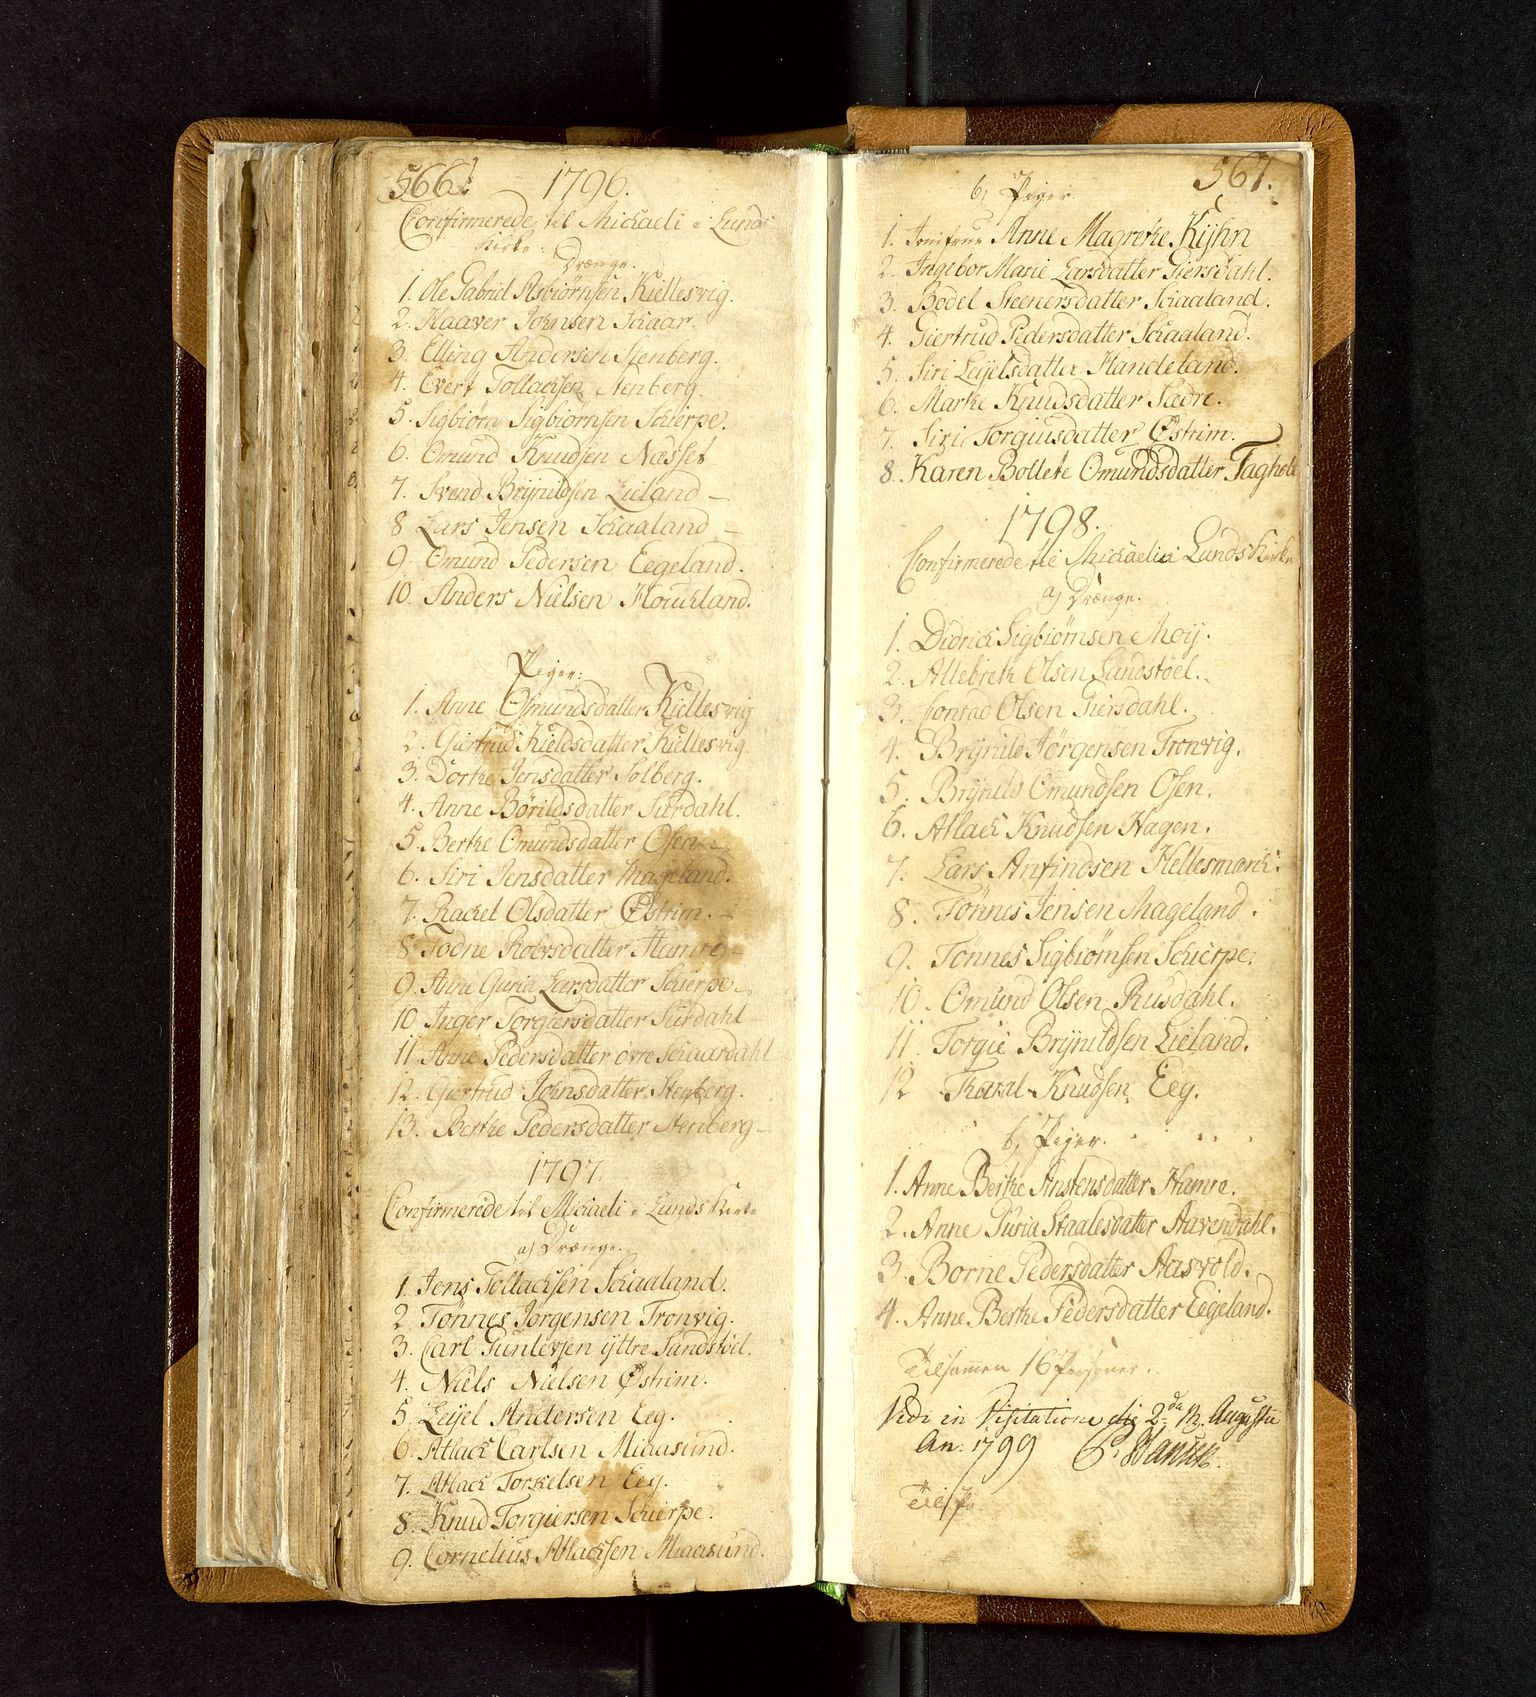 566.
1796.
Confirmerede til Michaeli i Lunds
Kirke.
Drænge.
1. Ole Gabriel Asbiörnsen Kiellesvig.
2. Haaver Johnsen Schaar.
3. Elling Andersen Stenberg.
4. Evert Tollachsen Stenberg.
5. Sigbiörn Sigbiörnsen Schierpe.
6. Omund Knudsen Næsset
7. Svend Brÿnildsen Lieland –
8 Lars Jensen Schaaland –
9. Omund Pedersen Eegeland.
10. Anders Nielsen Houchland.
Piger:
1. Anne Omundsdatter Kiellesvig
2. Giertrud Kieldsdatter Kiellesvig
3. Dorthe Jensdatter Solberg.
4. Anne Börildsdatter Surdahl.
5. Berthe Omundsdatter Osen –
6. Siri Jensdatter Mageland.
7. Rachel Olsdatter Østrim. –
8 Todne Roersdatter Hamre –
9. Anne Guria Larsdatter Schierpe –
10 Inger Torgiersdatter Surdahl –
11 Anne Pedersdatter övre Schaardahl
12. Giertrud Johnsdatter Stenberg.
13. Berthe Pedersdatter Stenberg –
1797.
Confirmerede til Michaeli i Lunds Kirke
a) Drænge.
1. Jens Tollachsen Schaaland.
2 Tönnes Jörgensen Tronvig.
3. Carl Gunlersen ÿttre Sandstöel.
4. Niels Nielsen Østrim.
5. Leÿel Andersen Eeg.
6. Atlach Carlsen Miaasund.
7. Atlach Torkelsen Eeg.
8. Knud Torgiersen Schierpe.
9. Cornelius Atlachsen Miaasund.
567.
b, Piger
1. Jomfrue Anne Magrethe Kÿhn
2. Ingebor Marie Larsdatter Giersdahl.
3. Bodel Steenersdatter Schaaland.
4. Giertrud Pedersdatter Schaaland.
5. Siri Leÿelsdatter Handeland.
6. Marthe Knudsdatter Sædre.
7. Siri Torgiusdatter Østrim.
8. Karen Bollete Omundsdatter Fagholt
1798.
Confirmerede til Michaelis i Lunds Kirke
a) Drænge.
1. Didrich Sigbiörnsen Moÿ.
2. Allebreth Olsen Sandstöel.
3. Conrad Olsen Giersdahl.
4. Brÿnild Jörgensen Tronvig.
5. Brÿnild Omundsen Osen.
6. Atlach Knudsen Hagen.
7. Lars Anfindsen Hellesmarch.
8. Tönnes Jensen Mageland.
9. Tönnes Sigbiörnsen Schierpe.
10. Omund Olsen Rusdahl.
11. Torgie Brÿnildsen Lieland.
12 Knudsen Eeg.
b, Piger.
1. Anne Berthe Anstensdatter Hamre.
2. Anne Guria Staalesdatter Aavendahl.
3. Borne Pedersdatter Aasvold.
4. Anne Berthe Pedersdatter Eegeland.
Tilsamen 16 Personer.
Vidi in Visitatione die 2da M. Augusti
An: 1799 P. Hansen.